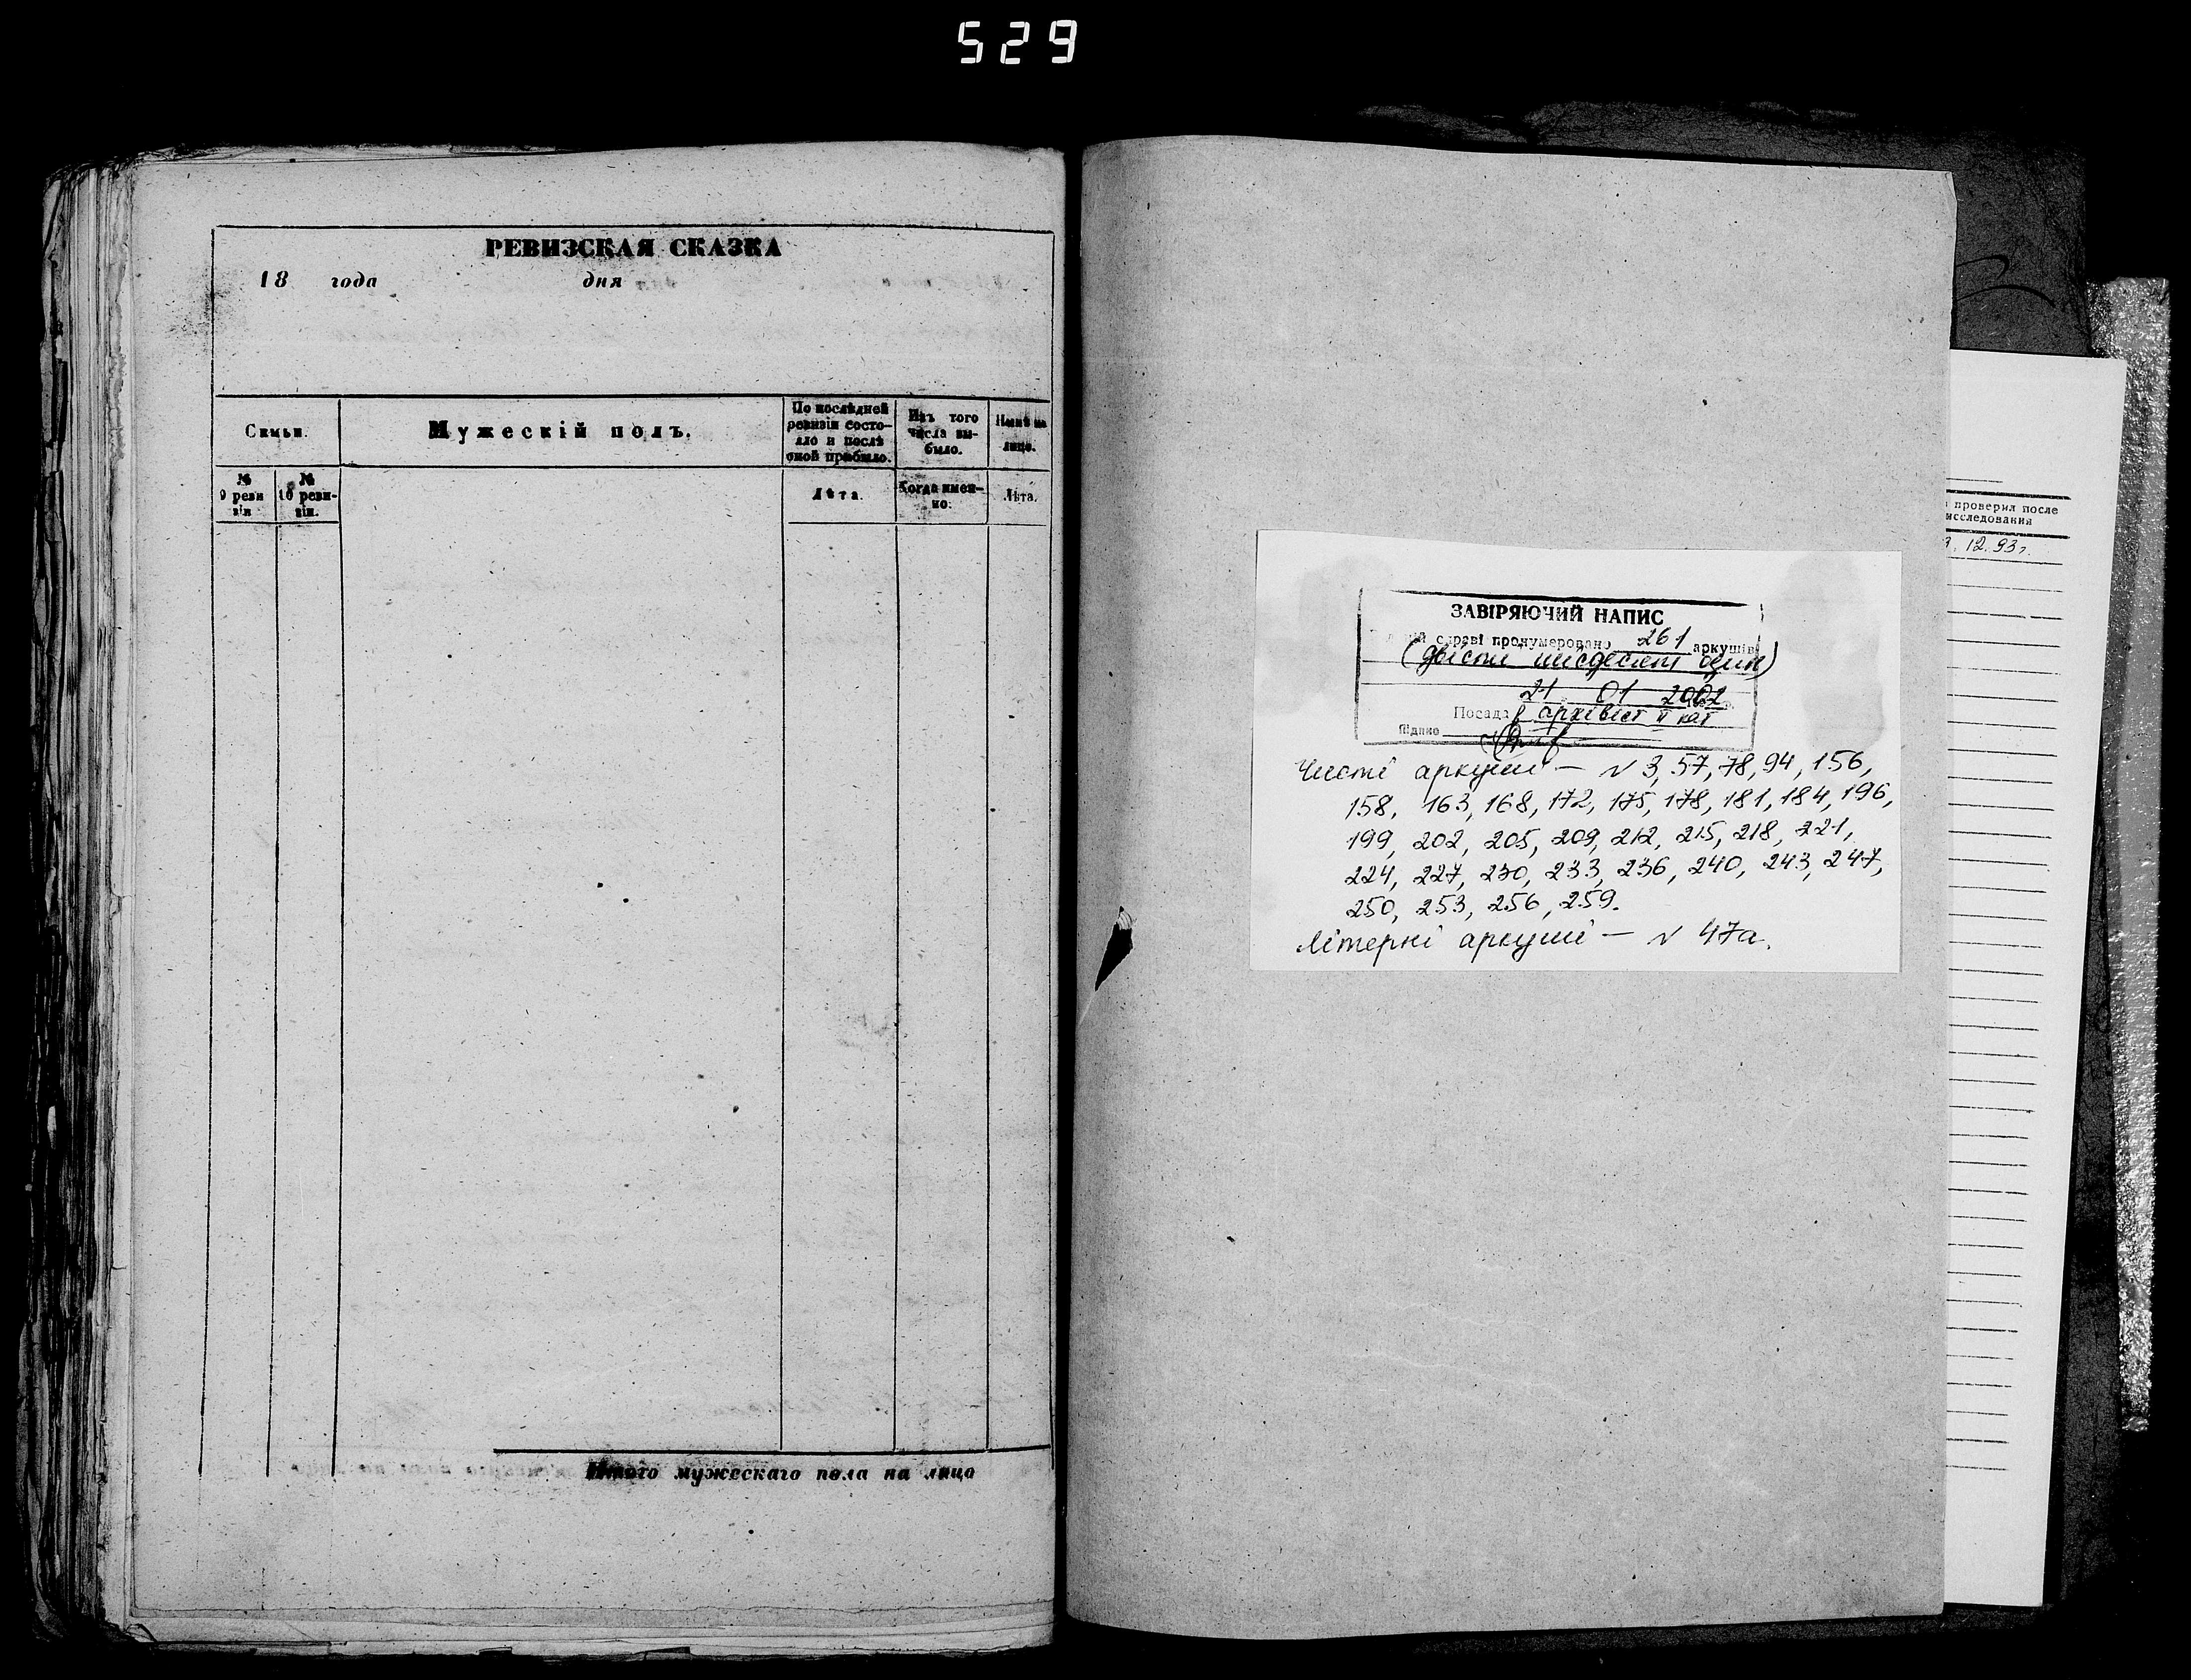 529
РЕВИЗСКАЯ СКАЗКА
18 года дня
Семьи.
Мужескій полъ.
По послѣдней ревизіи состо-
яло и послѣ
оной прибыло.
Изъ того
числа вы-
было.
Нынѣ на
лицо.
№
9 реви
зіи
№
10 реви-
зіи.
Лѣта.
Когда имен-
но.
Лѣта.
Итого мужескаго пола на лицо
ЗАВІРЯЮЧИЙ НАПИС
справі пронумеровано 261 аркушів
(двісті шісдесят один)
21 01 2002
Посада архівіст II кат
Підпис
Чисті аркуші – N 3, 57, 78, 94, 156,
158, 163, 168, 172, 175, 178, 181, 184, 196,
199, 202, 205, 209, 212, 215, 218, 221,
224, 227, 230, 233, 236, 240, 243, 247,
250, 253, 256, 259.
Літерні аркуші – N 47а.
проверил после
исследования
3. 12. 93 г.